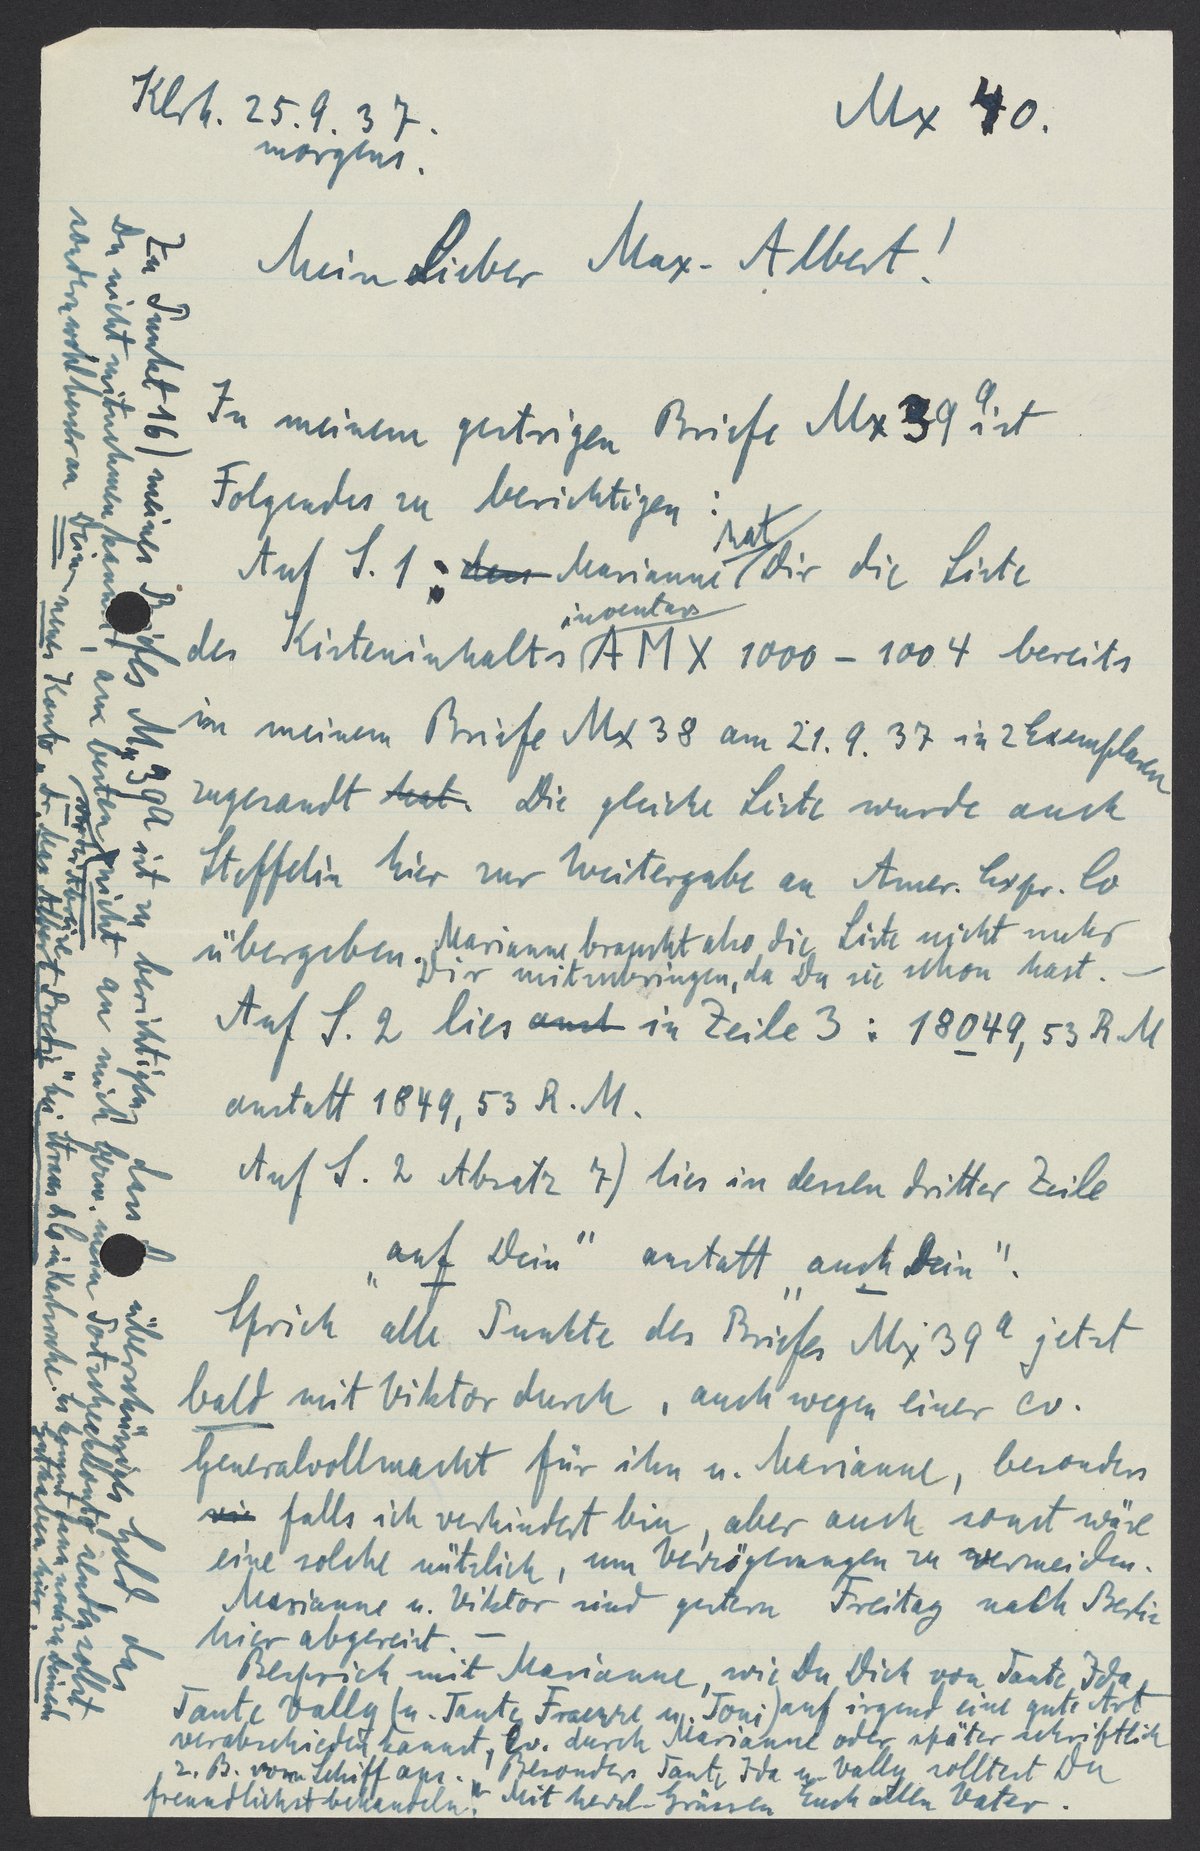 Klrh. 25.9.37.
morgens.
Mx 40.
Mein Lieber Max-Albert!
In meinem gestrigen Briefe Mx 39a ist
Folgendes zu berichtigen:
Auf S. 1: dass Marianne hat Dir die Liste
des Kisteninhalts inventars AMX 1000 – 1004 bereits
in meinem Briefe Mx 38 am 21.9.37 in 2 Exemplaren
zugesandt hat. Die gleiche Liste wurde auch
Steffelin hier zur Weitergabe an Amer. Expr. Co
übergeben. Marianne braucht also die Liste nicht mehr
Dir mitzubringen, da Du sie schon hast. –
Auf S. 2 lies auch in Zeile 3: 18049,53 R.M
anstatt 1849,53 R.M.
Auf S. 2 Absatz 7) lies in dessen dritter Zeile
"auf Dein" anstatt "auch Dein".
Sprich alle Punkte des Briefes Mx 39a jetzt
bald mit Viktor durch, auch wegen einer ev.
Generalvollmacht für ihn u. Marianne, besonders
wie falls ich verhindert bin, aber auch sonst wäre
eine solche nützlich, um Verzögerungen zu vermeiden.
Marianne u. Viktor sind gestern Freitag nach Berlin
hier abgereist. –
Besprich mit Marianne, wie Du Dich von Tante Ida
Tante Vally (u. Tante Fraenze u. Toni) auf irgend eine gute Art
verabschieden kannst, Ev. durch Marianne oder später schriftlich
z. B. vom Schiff aus. Besonders Tante Ida u. Vally solltest Du
freundlichst behandeln. Mit herzl. Grüssen Euch allen Vater.
Zu Punkt 16) meines Briefes Mx 39a ist zu berichtigen, dass überschüssiges Geld das
Du nicht mitnehmen kannst, am besten nicht an mich bezw. mein Postscheckkonto senden sollst
sondern wohl besser an Dein neues Konto "Dr. Max Albert" bei Straus & Co in Karlsruhe. Es kommt dann noch zu Deinem
Guthaben hier.